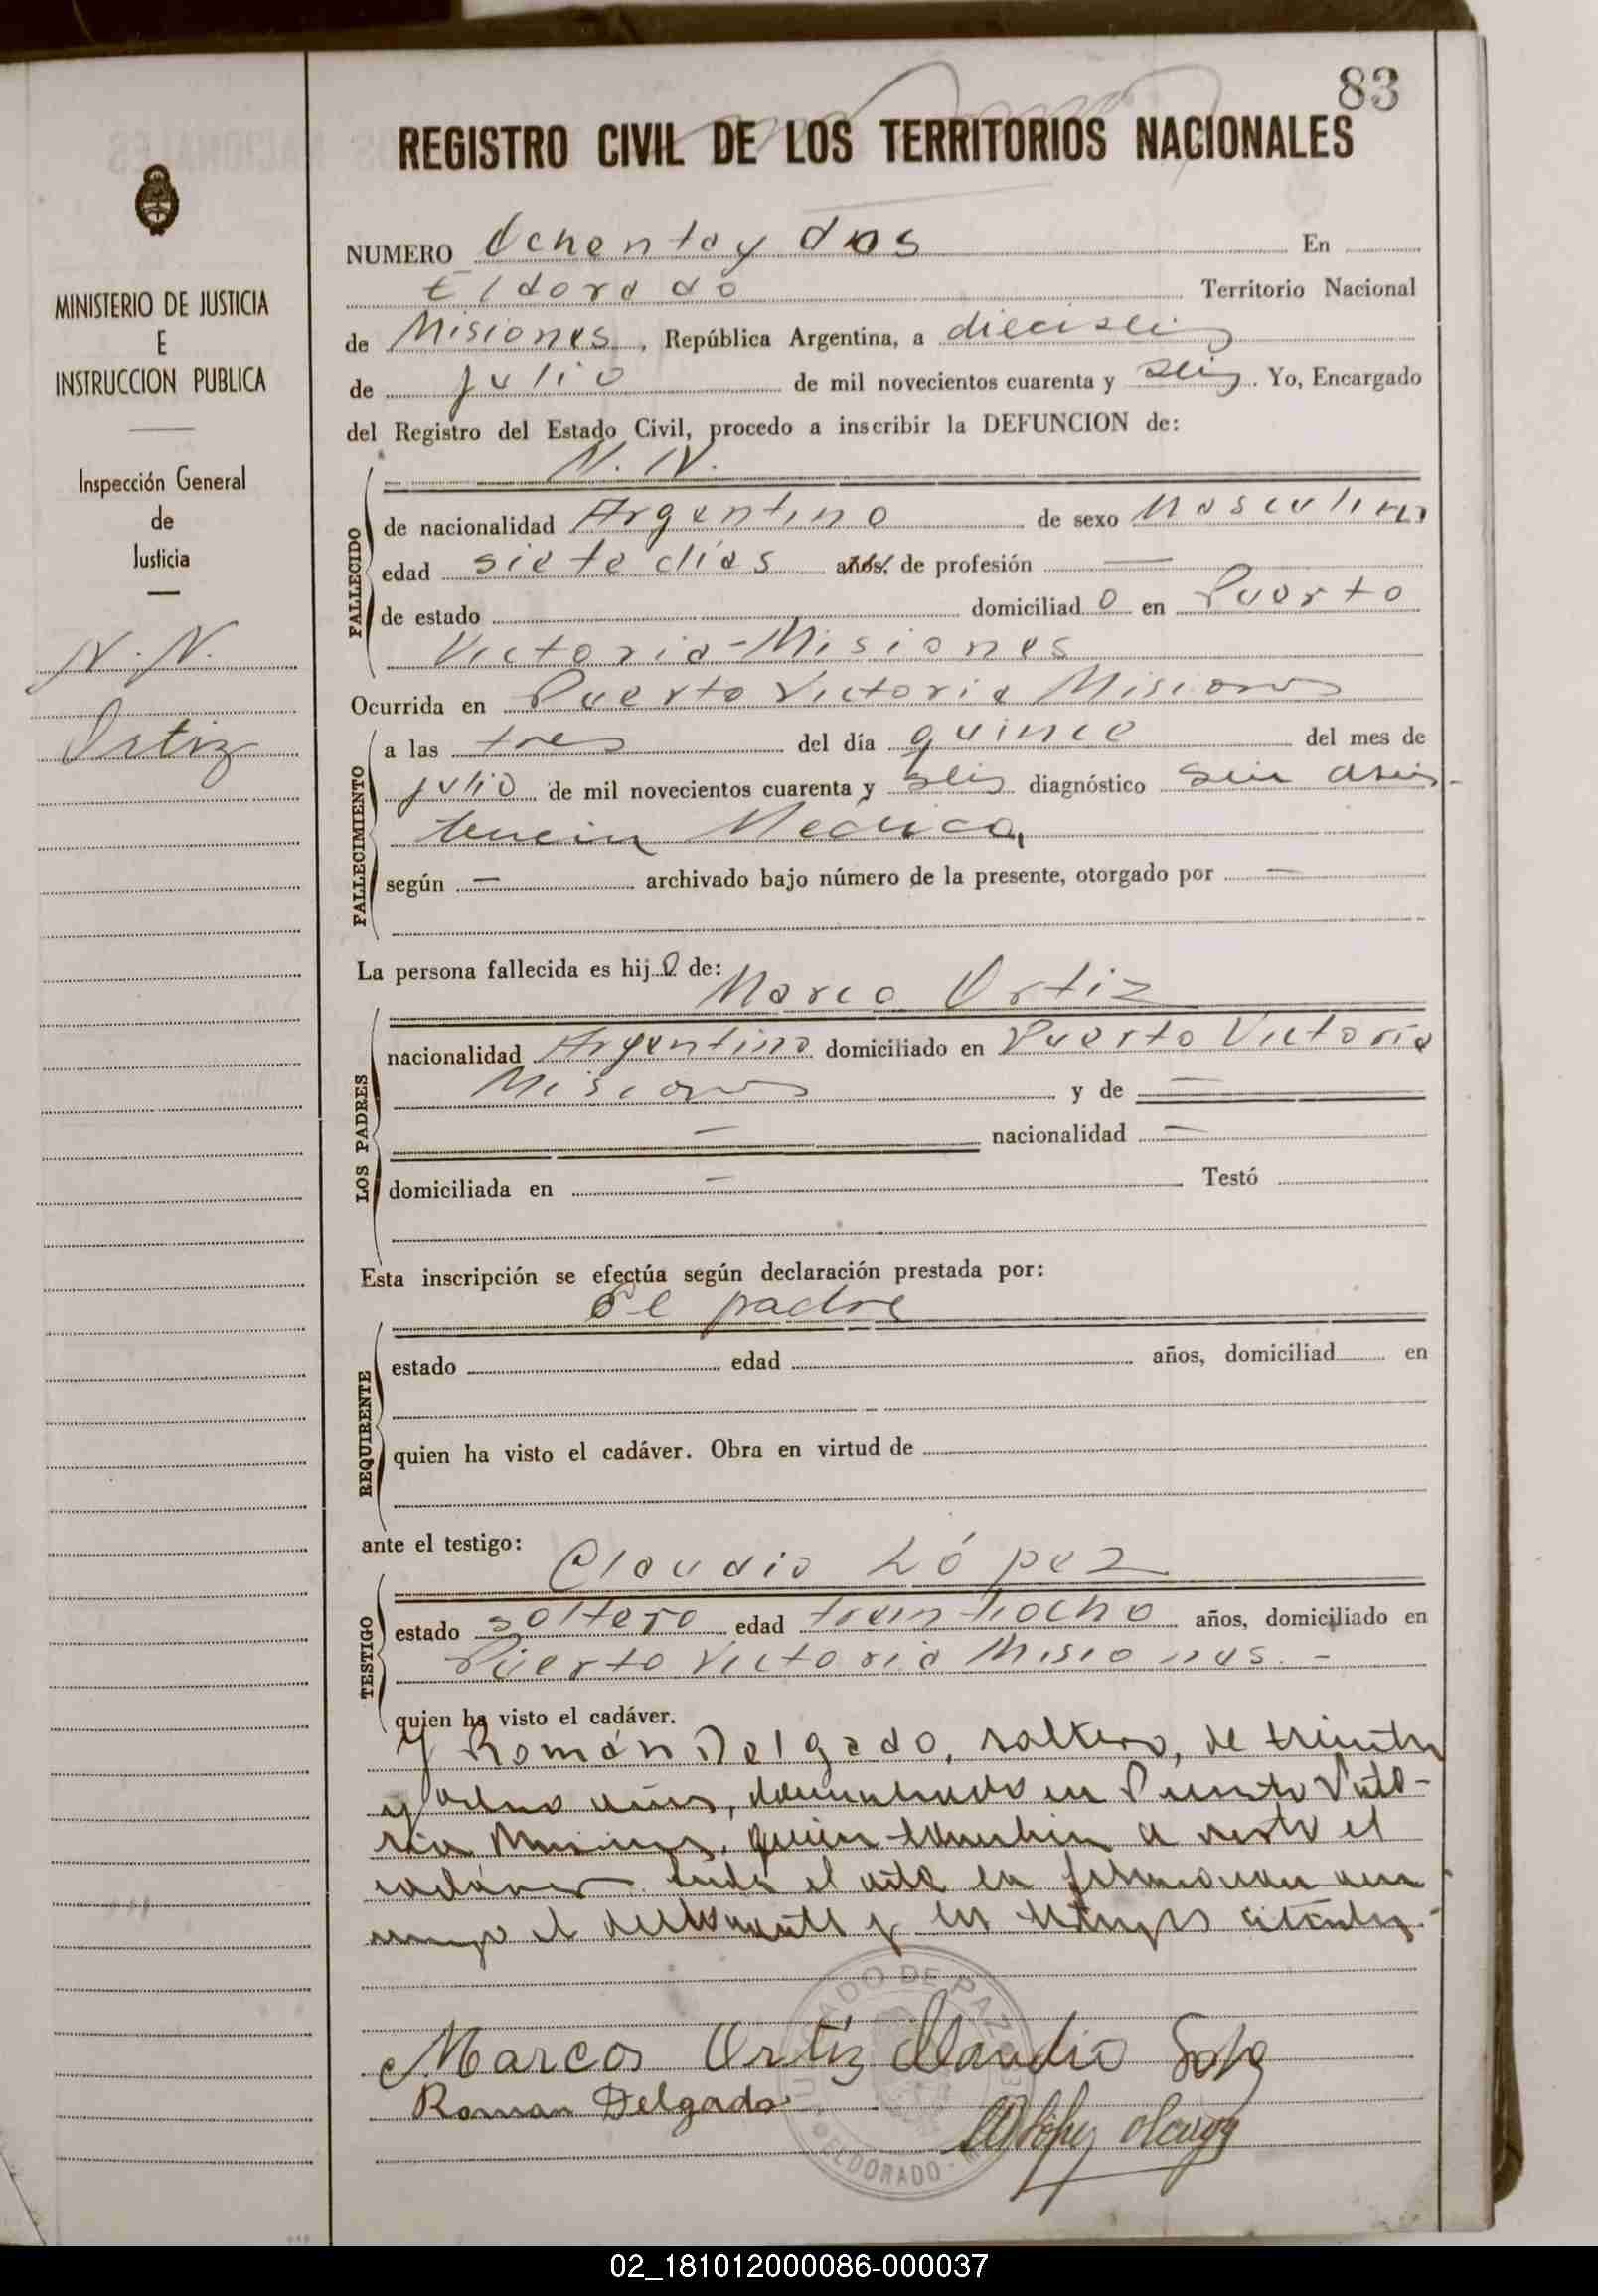 83
REGISTRO CIVIL DE LOS TERRITORIOS NACIONALES
MINISTERIO DE JUSTICIA
E
INSTRUCCION PUBLICA
Inspección General
de
Justicia
N. N.
Ortiz
NUMERO Ochenta y dos En
Eldorado Territorio Nacional
de Misiones, República Argentina, a dieciseis
de julio de mil novecientos cuarenta y seis. Yo, Encargado
del Registro del Estado Civil, procedo a inscribir la DEFUNCION de:
N. N.
FALLECIDO
de nacionalidad Argentino de sexo Masculino
edad siete días años, de profesión —
de estado domiciliado en Puerto
Victoria - Misiones
Ocurrida en Puerto Victoria Misiones
FALLECIMIENTO
a las tres del día quince del mes de
julio de mil novecientos cuarenta y seis diagnóstico sin asis-
tencia Medica,
según — archivado bajo número de la presente, otorgado por —
La persona fallecida es hijo de:
Marco Ortiz
LOS PADRES
nacionalidad Argentino domiciliado en Puerto Victoria
Misiones y de —
— nacionalidad —
domiciliada en — Testó
Esta inscripción se efectúa según declaración prestada por:
el padre
REQUIRENTE
estado edad años, domiciliad en
quien ha visto el cadáver. Obra en virtud de
ante el testigo:
Claudio López
TESTIGO
estado soltero edad treintiocho años, domiciliado en
Puerto Victoria Misiones. -
quien ha visto el cadáver.
Y Román Delgado, soltero, de treinta
y ocho años, domiciliado en Puerto Victo-
ria Misiones, quien tambien a visto el
cadáver. Leída el acta la firmaron con-
migo el declarante y los testigos citados.-
Marcos Ortiz Claudio
Roman Delgado
JUZGADO DE PAZ
ELDORADO
López
02_181012000086-000037